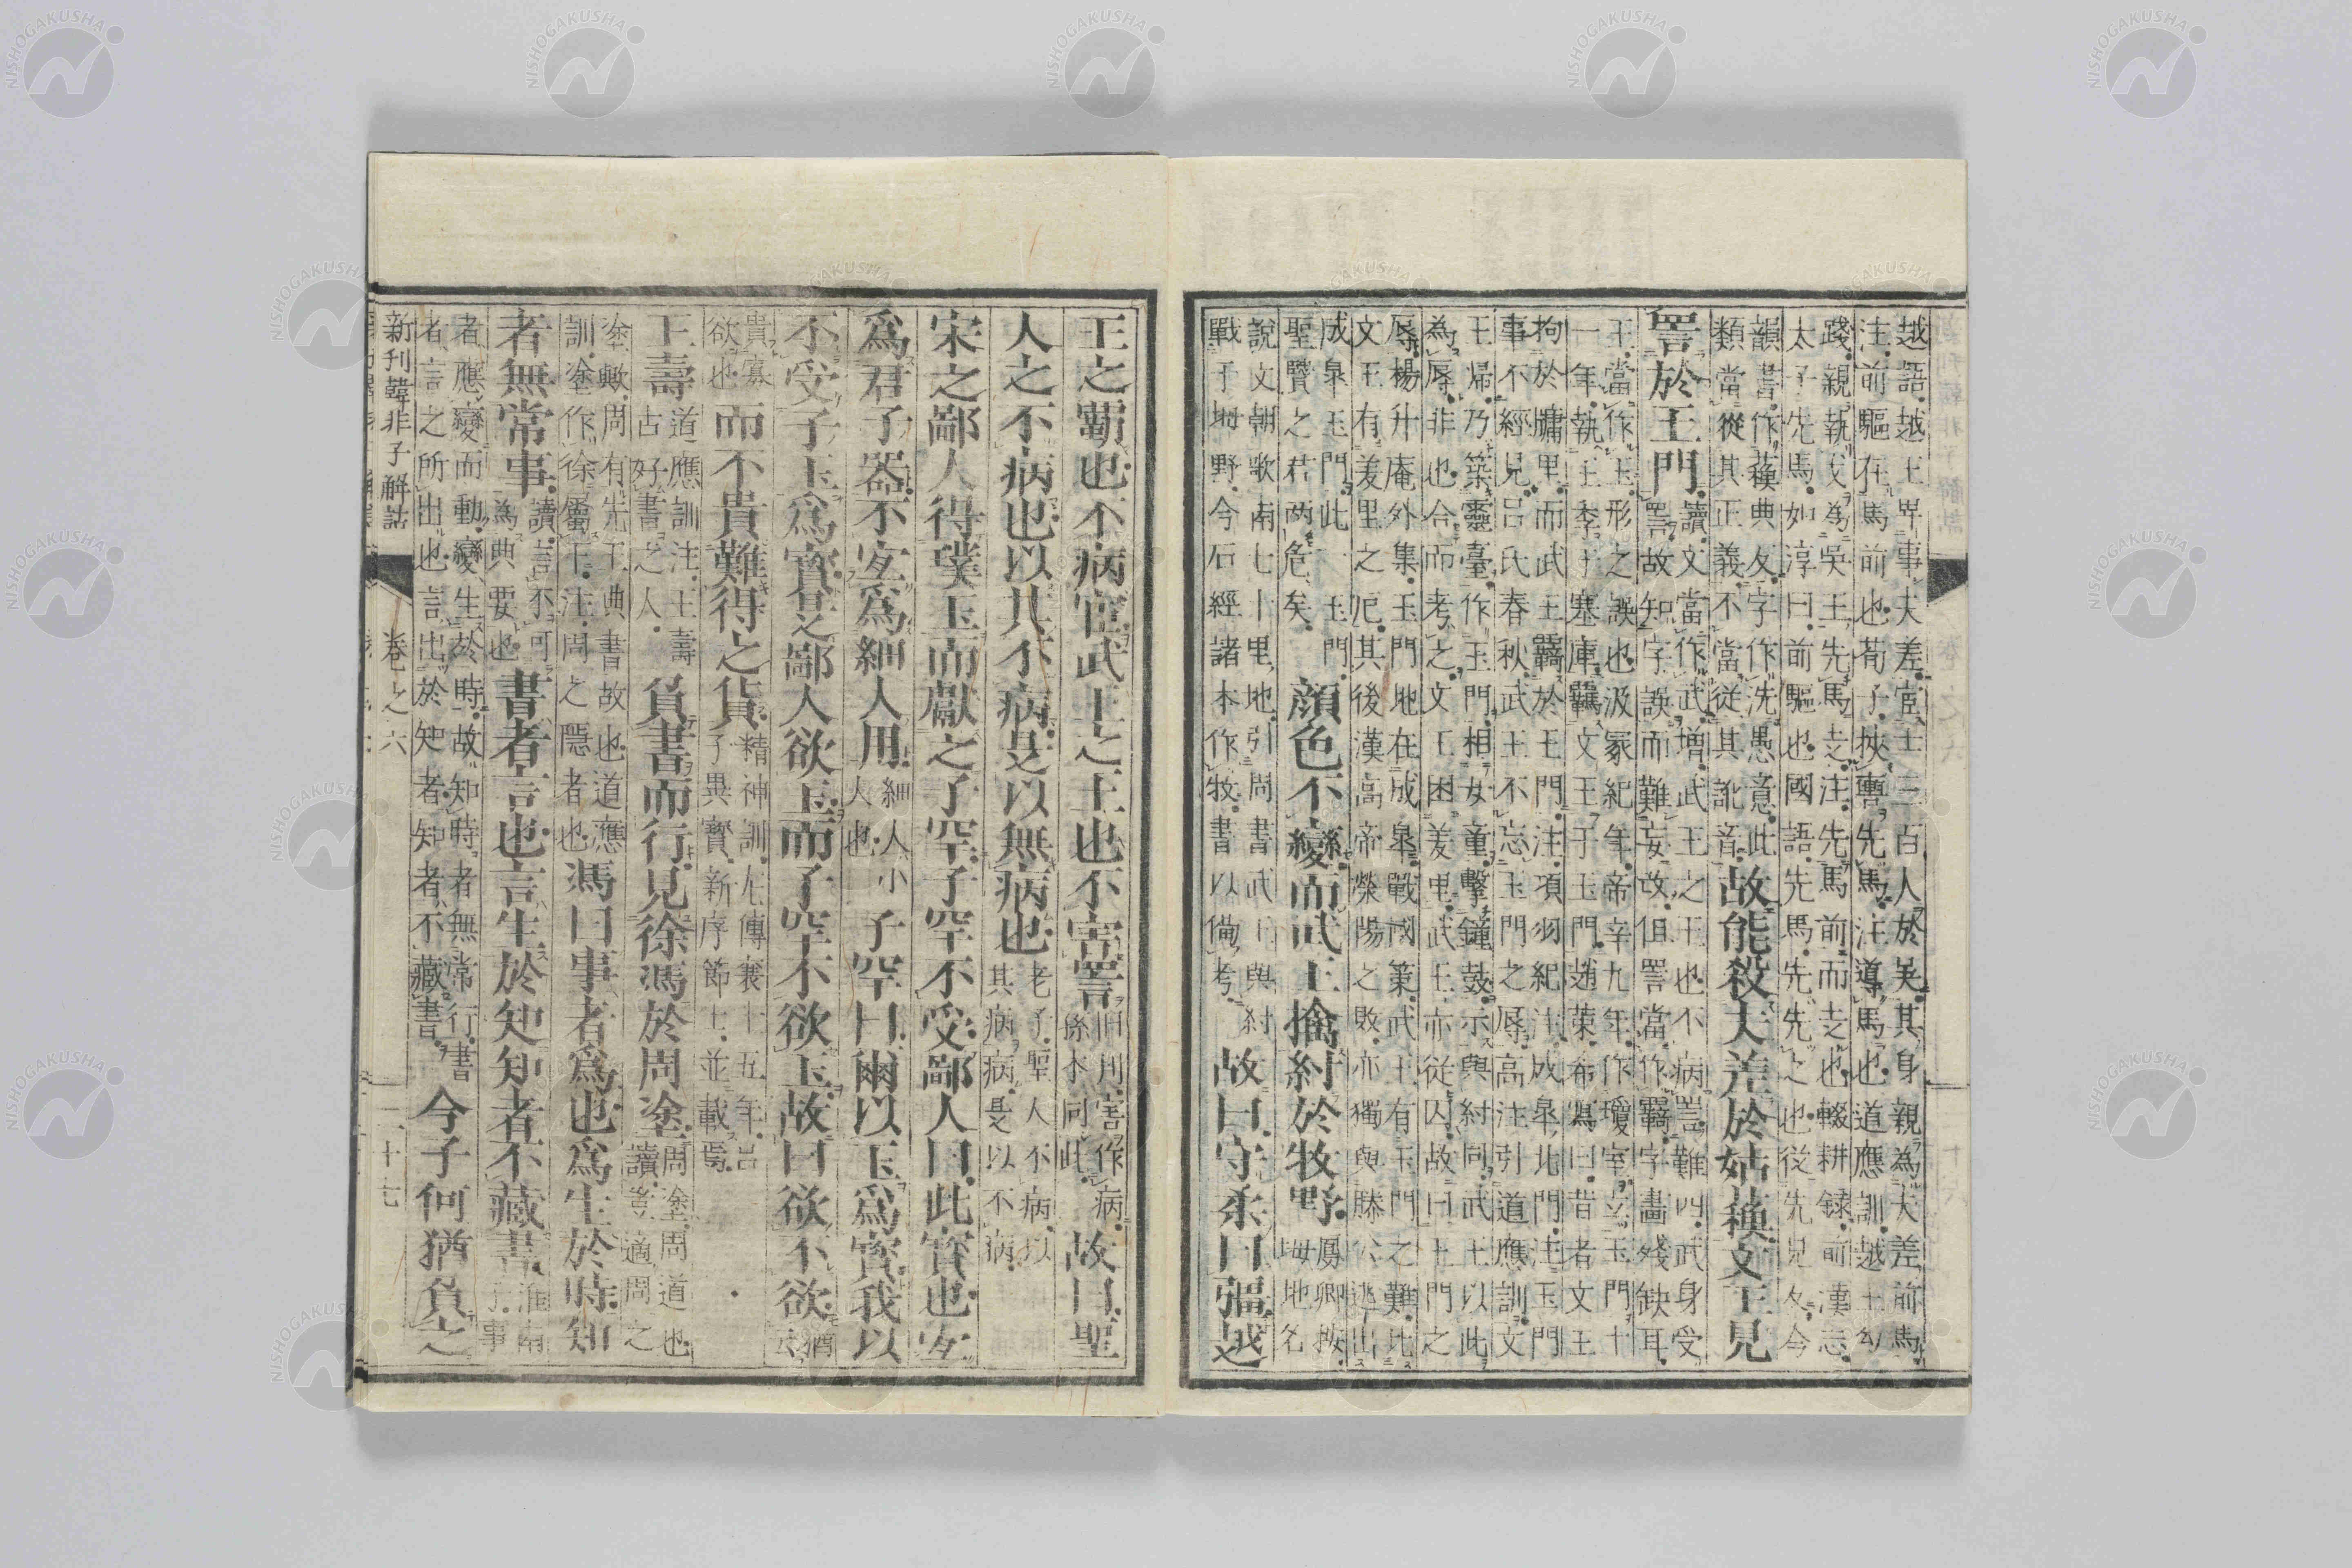 越語越王卑事夫差宦士三百人於吳其身親為夫差前馬
注前驅在馬前也荀子挾輿先馬注導馬也道應訓越王勾
踐親執戈為吳王先馬走注先馬前而走也輟耕錄前漢志
太子先馬如淳曰前驅也國語先馬先先之也從先見反今
韻書作蘓典反字作洗愚意此
類當從其正義不當從其訛音故能殺夫差於姑蘓文王見
詈於王門讀文當作武增武王之王也不病詈難四武身受
詈故知字誤而難妄改但詈當作羈字畫殘缺耳
王當作玉形之誤也汲冢紀年帝辛九年作瓊室立玉門十
一年執王季于塞庫羈文王于玉門趙東希寫曰昔者文王
拘於牗里而武王羈於王門注項羽紀注成皐北門注玉門
事不經見呂氏春秋武王不忘玉門之辱高注引道應訓文
王歸乃築靈臺作玉門相女童擊鐘鼓示與紂同武王以此
為辱非也合而考之文王困羑里武王亦從囚故曰王門之
辱楊升庵外集玉門地在成皐戰國策武王有玉門之難比
文王有羑里之厄其後漢高帝滎陽之敗亦獨與滕公逃出
成皐玉門此一玉門
聖賢之君两危矣顔色不變而武王擒紂於牧野厚卿按坶地名
說文朝歌南七十里地引周書武王與紂
戰于坶野今后經諸本作牧書以備考故曰守柔曰彊越
王之霸也不病宦武王之王也不害詈旧刋害作病絛本同此故曰聖
人之不病也以其不病是以無病也老子聖人不病以其病病是以不病
宋之鄙人得璞玉而獻之子罕子罕不受鄙人曰此寳也宐
爲君子器不宐爲細人用細人小人也子罕曰爾以玉爲寳我以
不受子玉爲寳是鄙人欲玉而子罕不欲玉故曰欲不欲猶云
貴寡欲也而不貴難得之貨精神訓左傳襄十五年呂子異寳新序節士並載焉
王壽道應訓注王壽古好書之人負書而行見徐馮於周塗周塗周道也讀豈適周之
塗歟周有先王典書故也道應
訓塗作徐屬下注周之隱者也馮曰事者爲也爲生於時知
者無常事讀言不可為典要也書者言也言生於知知者不藏書淮南子事
者應變而動變生於時故知時者無常行書
者言之所出也言出於知者知者不藏書今子何猶負之
新刊韓非子解詁 卷之六 二十七